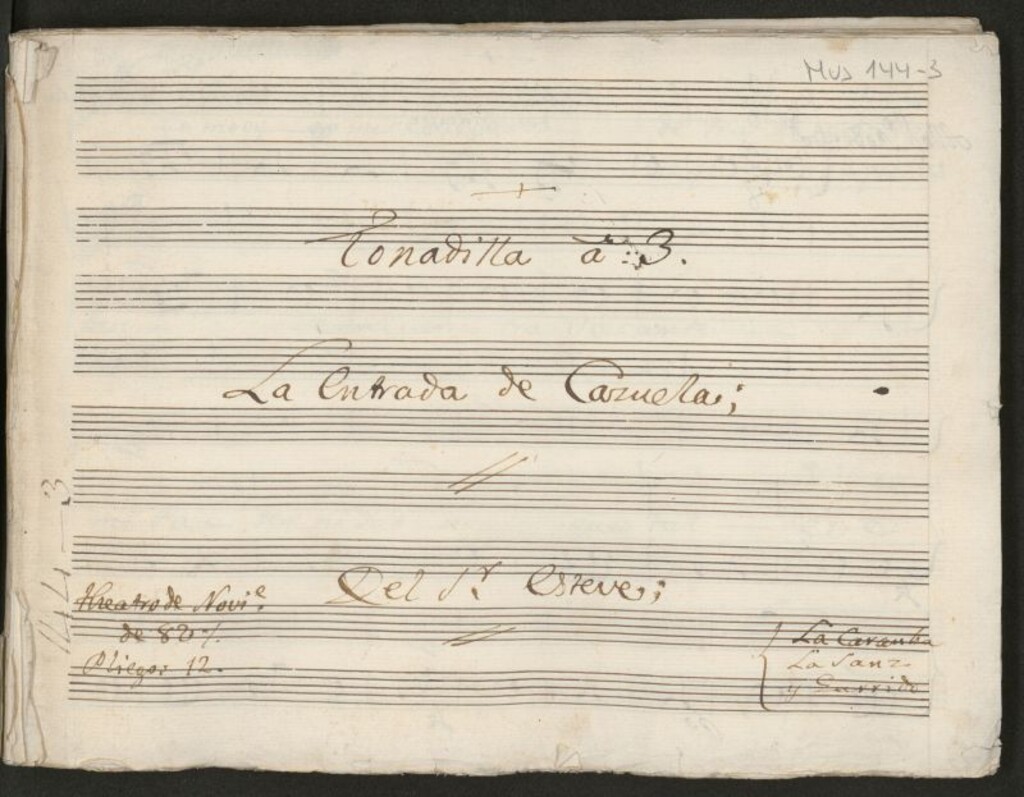 Mus 144-3
Tonadilla à 3.
La Entrada de Cazuela;
Del Sr. Esteve;
144-3
theatro de Novie.
de 82
Pliegos 12.
La Caramba
La Sanz
y Garrido